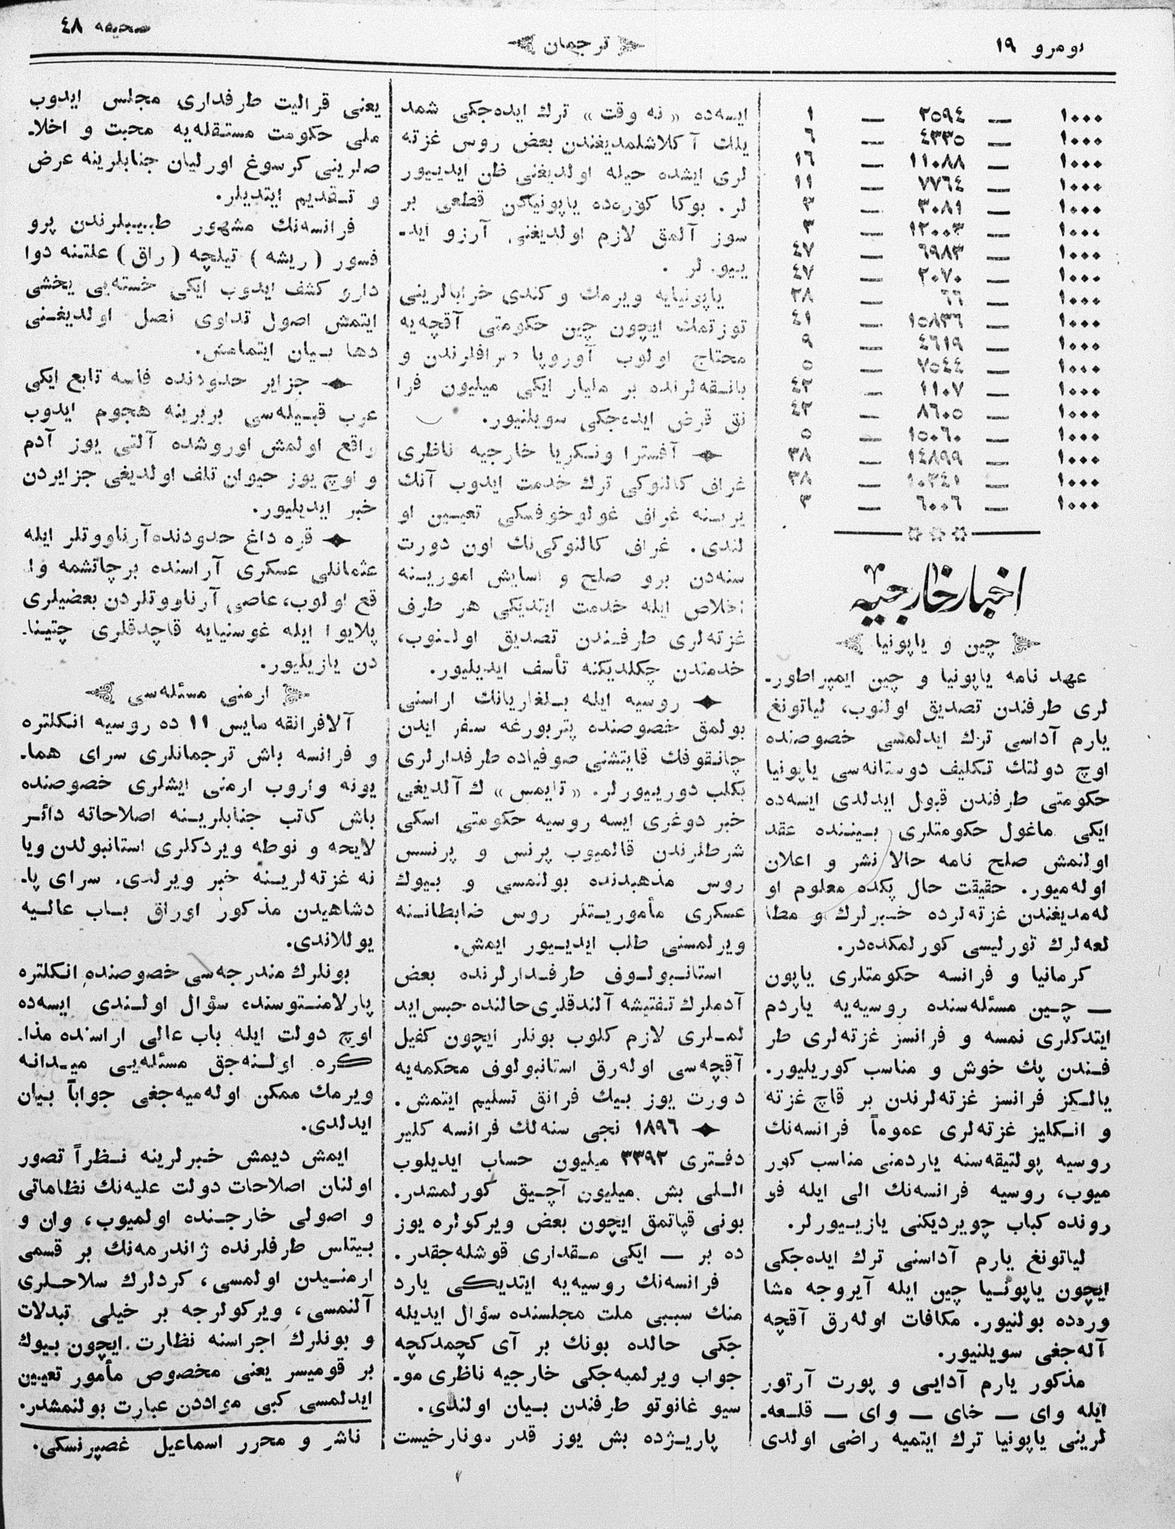 نومرو ١٩
ترجمان
صحیفه ٤٨
١٠٠٠ — ٢٥٩٤ — ١
١٠٠٠ — ٤٣٣٥ — ٦
١٠٠٠ — ١١٠٨٨ — ١٦
١٠٠٠ — ٧٧٦٤ — ١١
١٠٠٠ — ٣٠٨١ — ٣
١٠٠٠ — ١٢٠٠٣ — ٣
١٠٠٠ — ٦٩٨٣ — ٤٧
١٠٠٠ — ٢٠٧٠ — ٤٧
١٠٠٠ — ٦٦ — ٢٨
١٠٠٠ — ١٥٨٣٦ — ٤١
١٠٠٠ — ٤٦١٩ — ٩
١٠٠٠ — ٧٥٤٤ — ٥
١٠٠٠ — ١١٠٧ — ٤٢
١٠٠٠ — ٨٦٠٥ — ٤٢
١٠٠٠ — ١٥٠٦٠ — ٥
١٠٠٠ — ١٤٨٩٩ — ٣٨
١٠٠٠ — ١٠٢٤١ — ٣٨
١٠٠٠ — ٦٠٠٦ — ٣
اخبار خارجیه
چین و یاپونیا
عهد نامه یاپونیا و چین ایمپراطور۔
لری طرفندن تصدیق اولنوب، لیاتونغ
یارم آداسی ترك ایدلمسی خصوصنده
اوچ دولتك تكلیف دوستانه‌سی یاپونیا
حكومتی طرفندن قبول ایدلدی ایسه‌ده
ایكی ماغول حكومتلری بیننده عقد
اولنمش صلح نامه حالا نشر و اعلان
اوله‌میور. حقیقت حال پكده معلوم او
له‌مدیغندن غزته‌لرده خبرلرك و مطا
لعه‌لرك تورلیسی كورلمكده‌در.
كرمانیا و فرانسه حكومتلری یاپون
— چین مسئله‌سنده روسیه‌یه یاردم
ایتدكلری نمسه و فرانسز غزته‌لری طر
فندن پك خوش و مناسب كوریلیور.
یالكز فرانسز غزته‌لرندن بر قاچ غزته
و انكلیز غزته‌لری عموماً فرانسه‌نك
روسیه پولتیقه‌سنه یاردمنی مناسب كور
میوب، روسیه فرانسه‌نك الی ایله فو
رونده كباب چویردیكنی یازییورلر.
لیاتونغ یارم آداسنی ترك ایده‌جكی
ایچون یاپونیا چین ایله آیروجه مشا
وره‌ده بولنیور. مكافات اوله‌رق آقچه
آله‌جغی سویلنیور.
مذكور یارم آدایی و پورت آرتور
ایله وای — خای — وای — قلعه۔
لرینی یاپونیا ترك ایتمیه راضی اولدی
ایسه‌ده «نه وقت» ترك ایده‌جكی شمد
یلك آكلاشلمدیغندن بعض روس غزته
لری ایشده حیله اولدیغنی ظن ایدییور
لر. بوكا كوره‌ده یاپونیادن قطعی بر
سوز آلمق لازم اولدیغنی آرزو اید۔
ییورلر.
یاپونیایه ویرمك و كندی خرابالرینی
توزتمك ایچون چین حكومتی آقچه‌یه
محتاج اولوب آوروپا صرافلرندن و
بانقه‌لرنده بر ملیار ایكی میلیون فرا
نق قرض ایده‌جكی سویلنیور.
آفسترا ونكریا خارجیه ناظری
غراف كالنوكی ترك خدمت ایدوب آنك
یرینه غراف غولوخوفسكی تعیین او
لندی. غراف كالنوكی‌نك اون دورت
سنه‌دن برو صلح و اسایش اموریـنه
اخلاص ایله خدمت ایتدیكی هر طرف
غزته‌لری طرفندن تصدیق اولنوب،
خدمتدن چكلدیكنه تأسف ایدیلیور.
روسیه ایله بلغاریانك اراسنی
بولمق خصوصنده پتربورغه سفر ایدن
چانقوفك قایتشنی صوفیاده طرفدارلری
بكلب دورییورلر. «تایمس» ك آلدیغی
خبر دوغری ایسه روسیه حكومتی اسكی
شرطلرندن قالمیوب پرنس و پرنسس
روس مذهبنده بولنمسی و بیوك
عسكری مأموریتلر روس ضابطانـنه
ویرلمسنی طلب ایدییور ایمش.
استانبولوف طرفدارلرنده بعض
آدملرك تفتیشه آلندقلری حالنده حبس اید
لمـلری لازم كلوب بونلر ایچون كفیل
آقچه‌سی اوله‌رق استانبولوف محكمه‌یه
دورت یوز بیك فرانق تسلیم ایتمش.
١٨٩٦ نجی سنه‌لك فرانسه كلیر
دفتری ٣٣٩٢ میلیون حساب ایدیلوب
اللی بش میلیون آچیق كورلمشدر.
بونی قپاتمق ایچون بعض ویركولره یوز
ده بر — ایكی مقداری قوشله‌جقدر.
فرانسه‌نك روسیه‌یه ایتدیكی یارد
منك سببی ملت مجلسنده سؤال ایدیله
جكی حالده بونك بر آی كچمدكچه
جواب ویرلمیه‌جكی خارجیه ناظری مو۔
سیو غانوتو طرفندن بیان اولندی.
پاریژده بش یوز قدر مونارخیست
یعنی قرالیت طرفداری مجلس ایدوب
ملی حكومت مستقله‌یه محبت و اخلا۔
صلرینی كرسوغ اورلیان جنابلرینه عرض
و تقدیم ایتدیلر.
فرانسه‌نك مشهور طبیبلرندن پرو
فسور (ریشه) تیلچه (راق) علتنه دوا
دارو كشف ایدوب ایكی خسته‌یی یخشی
ایتمش اصول تداوی نصل اولدیغنی
دها بیان ایتمامش.
جزایر حدودنده فاسه تابع ایكی
عرب قبیله‌سی بربرینه هجوم ایدوب
واقع اولمش اوروشده آلتی یوز آدم
و اوچ یوز حیوان تلف اولدیغی جزایردن
خبر ایدیلیور.
قره داغ حدودنده آرناووتلر ایله
عثمانلی عسكری آراسنده برچاتشمه وا
قع اولوب، عاصی آرناووتلردن بعضیلری
پلایوا ایله غوسنیایه قاچدقلری چتینا۔
دن یازیلیور.
ارمنی مسئله‌سی
آلافرانقه مایس ١١ ده روسیه انكلتره
و فرانسه باش ترجمانلری سرای هما۔
یونه واروب ارمنی ایشلری خصوصنده
باش كاتب جنابلرینه اصلاحاته دائر
لایحه و نوطه ویردكلری استانبولدن ویا
نه غزته‌لرینه خبر ویرلدی. سرای پا۔
دشاهیدن مذكور اوراق باب عالیه
یوللاندی.
بونلرك مندرجه‌سی خصوصنده انكلتره
پارلامنتوسنده سؤال اولندی ایسه‌ده
اوچ دولت ایله باب عالی اراسنده مذا۔
كره اولنه‌جق مسئله‌یی میدانه
ویرمك ممكن اوله‌میه‌جغی جواباً بیان
ایدلدی.
ایمش دیمش خبرلرینه نظراً تصور
اولنان اصلاحات دولت علیه‌نك نظاماتی
و اصولی خارجنده اولمیوب، وان و
بیتلس طرفلرنده ژاندرمه‌نك بر قسمی
ارمنیدن اولمسی، كردلرك سلاحلری
آلنمسی، ویركولرجه بر خیلی تبدلات
و بونلرك اجراسنه نظارت ایچون بیوك
بر قومیسر یعنی مخصوص مأمور تعیین
ایدلمسی كبی موادّدن عبارت بولنمشدر.
ناشر و محرر اسماعیل غصپرنسكی.